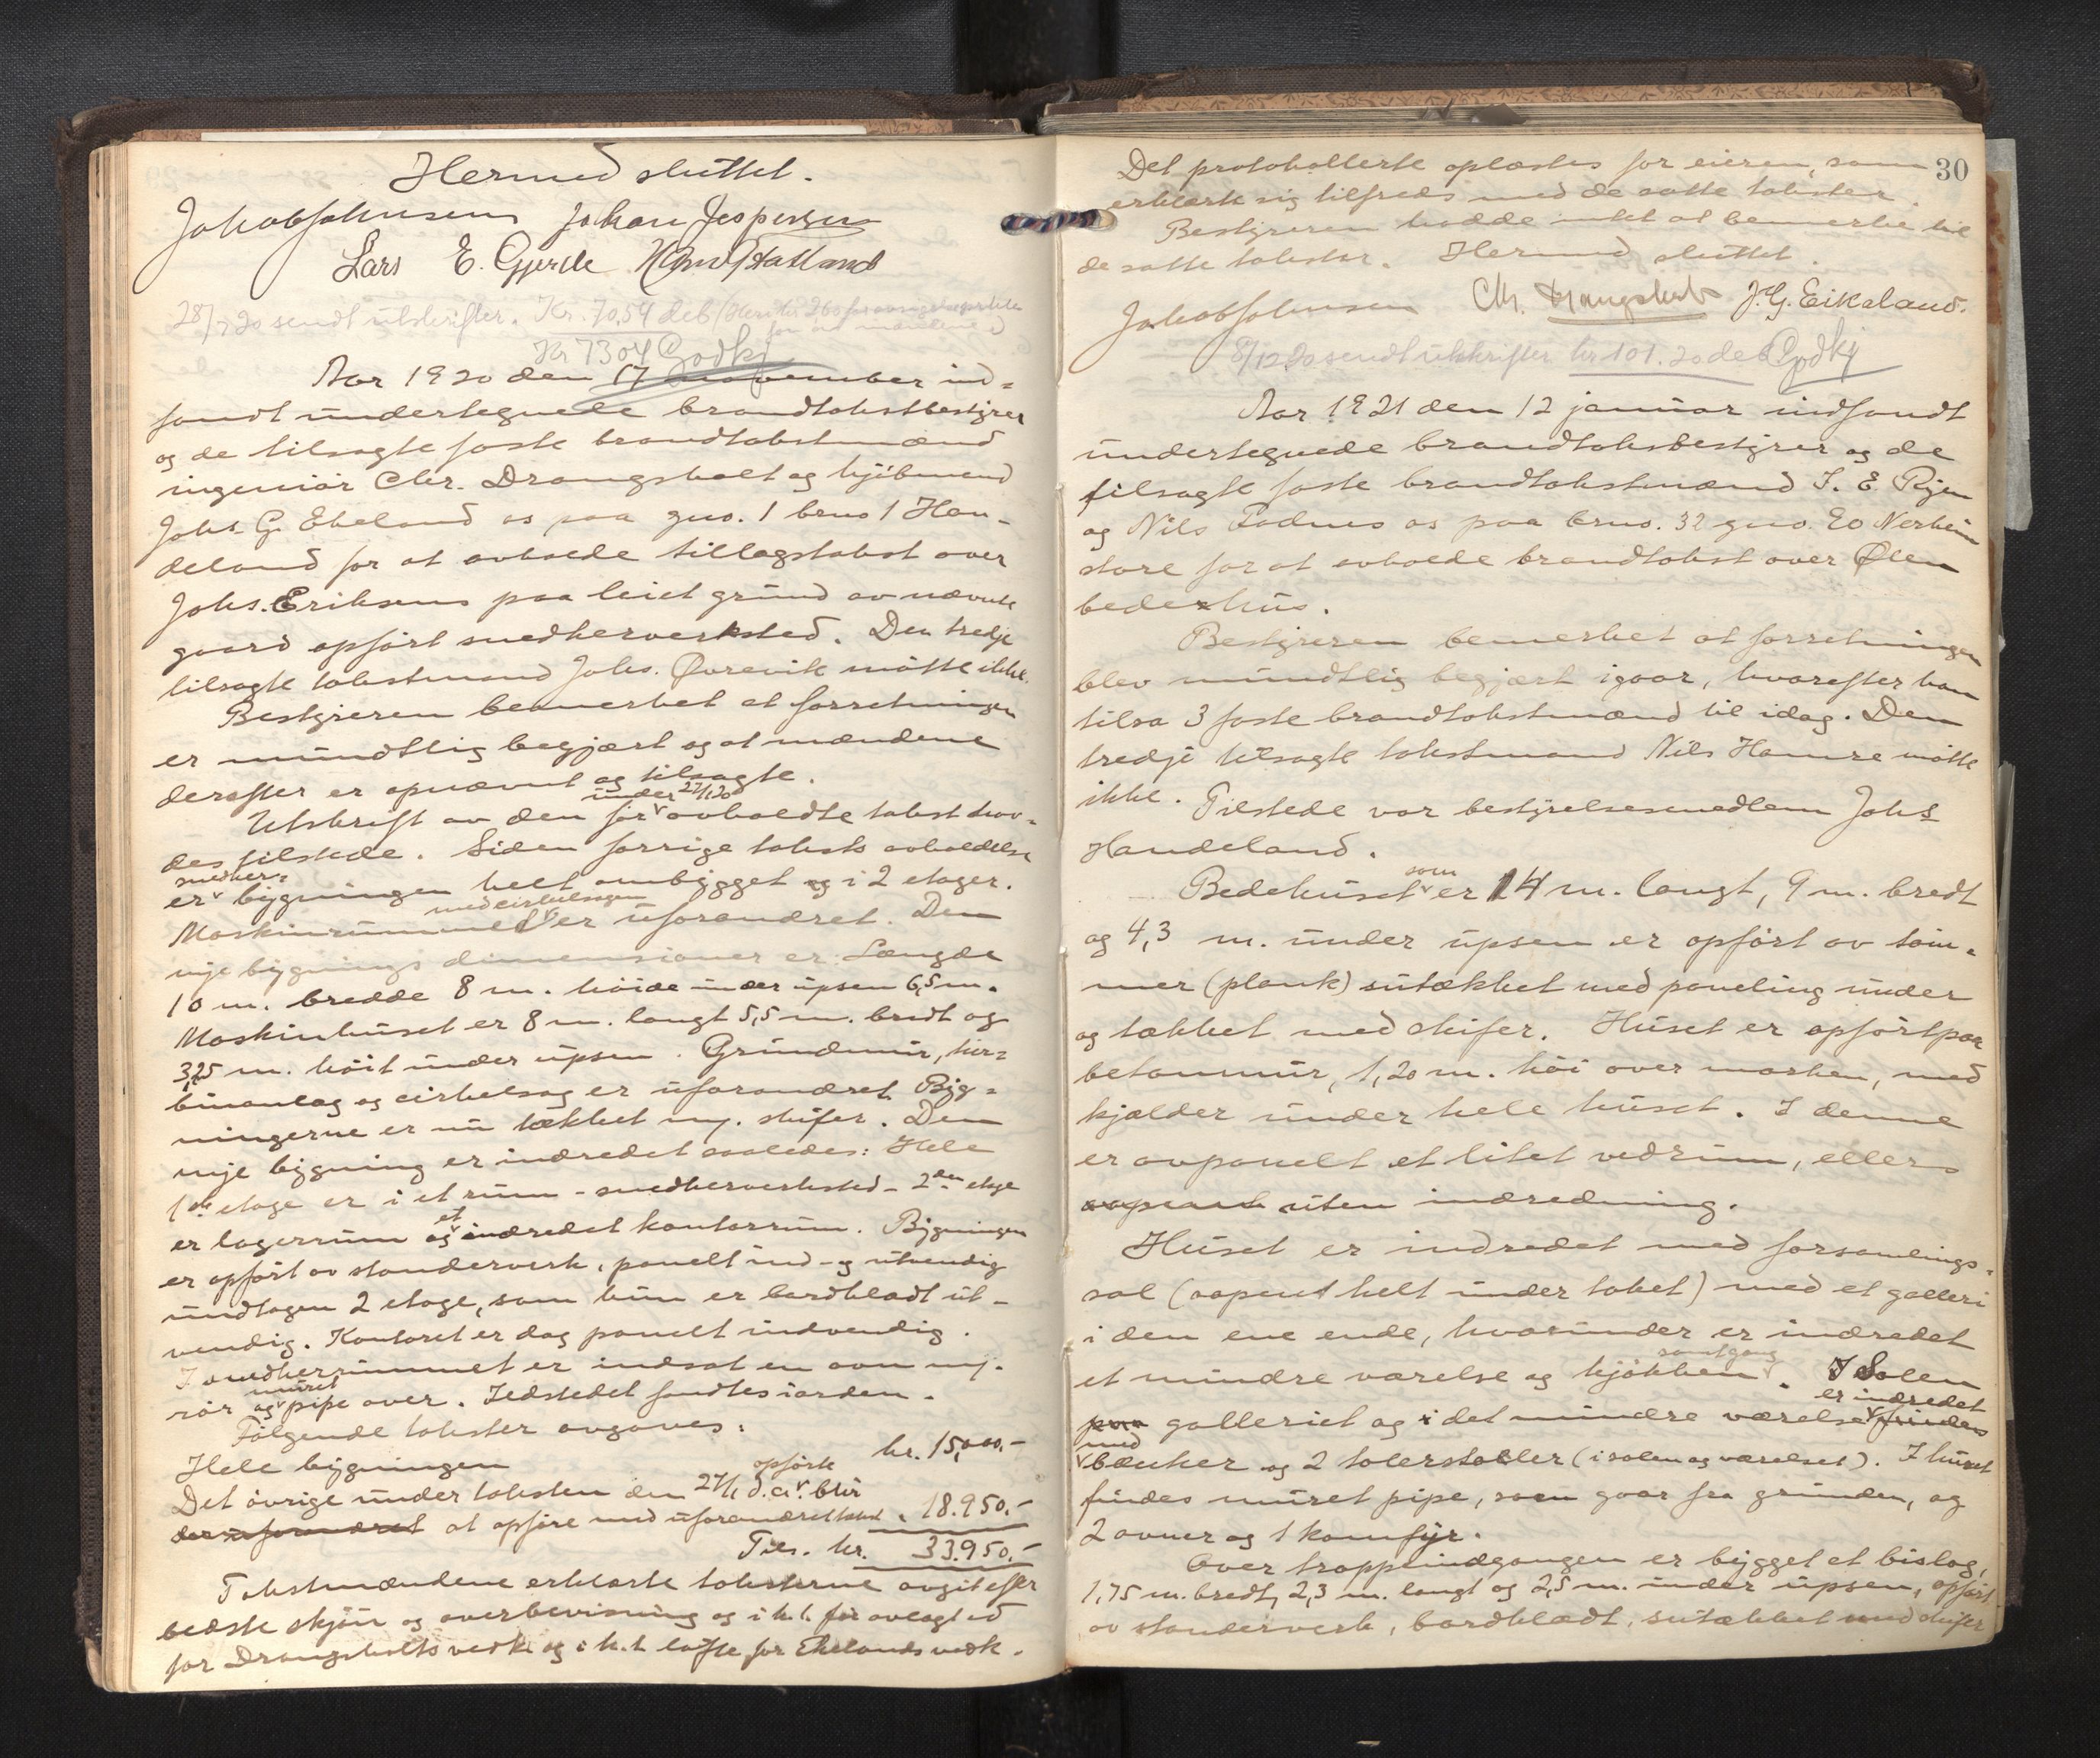 Hermed sluttet.
Jakob Johnsen Johan Jespersen
Lars E. Gjerde
28/7 20 sendt utskrifter. Kr. 70,54 deb
Kr 7304 Godkj
Aar 1920 den 17 november ind-
fandt undertegnede brandtakstbestyrer
og de tilsagte faste brandtakstmænd
ingeniør Chr. Drangsholt og kjøbmand
Johs. G. Ekeland os paa gno. 1 bno 1 Han-
deland for at avholde tillagstakst over
Johs. Eriksens paa leiet grund av nævnte
gaard opført snedkerverksted. Den tredje
tilsagte takstmand Johs. Øvrevik møtte ikke.
Bestyreren bemerket at forretningen
er mundtlig begjært og at mændene
derefter er opnævnt og tilsagte.
under 27/1 20
Utskrift av den før avholdte takst hav-
des tilstede. Siden forrige taksts avholdelse
snedker-
er bygningen helt ombygget og i 2 etager.
med cirkelsagen
Maskinrummet er uforandret. Den
nye bygnings dimensioner er: Længde
10 m. bredde 8 m. høide under upsen 6,5 m.
Maskinhuset er 8 m. langt 5,5 m. bredt og
3,25 m. høit under upsen. Grundmur, tur-
binanlæg og cirkelsag er uforandret. Byg-
ningerne er nu tækket m. skifer. Den
nye bygning er indredet saaledes: Hele
1ste etage er i et rum - snedkerverksted - 2den etage
et
er lagerrum og indredet kontorrum. Bygningen
er opført av standerverk, panelt ind- og utvendig
undtagen 2 etage, som kun er bordklædt ut-
vendig. Kontoret er dog panelt indvendig.
I snedkerrummet er indsat en ovn m.
muret
rør og pipe over. Ildstedet fandtes i orden.
Følgende takster avgaves:
Hele bygningen kr. 15,000.-
opførte
Det øvrige under taksten den 27/1 d.a. blir
der uforandret at opføre med uforandret takst " 18.950.-
Tils. kr. 33.950.-
Takstmændene erklærte taksterne avgit efter
bedste skjøn og overbevisning og i h.t. før avlagt ed
for Drangsholts verk. og i h.t. løfte for Ekelands vedk.
30
Det protokollerte oplæstes for eieren, som
erklærte sig tilfreds med de satte takster.
Bestyreren hadde intet at bemerke til
de satte takster. Hermed sluttet.
Jakob Johnsen Chr. Drangsholt J. G. Eikeland.
8/12 20 sendt utskrifter kr 101.20 deb Godkj
Aar 1921 den 12 januar indfandt
undertegnede brandtakstbestyrer og de
tilsagte faste brandtakstmænd I. E.
og Nils os paa bno. 32 gno. 20 Nerheim
store for at avholde brandtakst over Ølen
bedehus.
Bestyreren bemerket at forretningen
blev mundtlig begjært igaar, hvorefter han
tilsa 3 faste brandtakstmænd til idag. Den
tredje tilsagte takstmand Nils Hamre møtte
ikke. Tilstede var bestyrelsesmedlem Johs
Handeland.
som
Bedehuset er 14 m. langt, 9 m. bredt
og 4,3 m. under upsen er opført av tøm-
mer (plank) sutækket med paneling under
og tækket med skifer. Huset er opført paa
betonmur, 1,20 m. høi over marken, med
kjælder under hele huset. I denne
er avpanelt et litet vedrum, ellers
uten indredning.
Huset er indredet med forsamlings-
sal (aapent helt under taket) med et galleri
i den ene ende, hvorunder er indredet
samt gang
et mindre værelse og kjøkken. I Salen
er indredet
paa galleriet og i det mindre værelse findes
med
bænker og 2 talerstoler (i salen og værelset). I huset
findes muret pipe, som gaar fra grunden, og
2 ovner og 1 komfyr.
Over trappeindgangen er bygget et bislag,
1,75 m. bredt, 2,3 m. langt og 2,5 m. under upsen, opført
av standerverk, bordklædt, sutækket med skifer